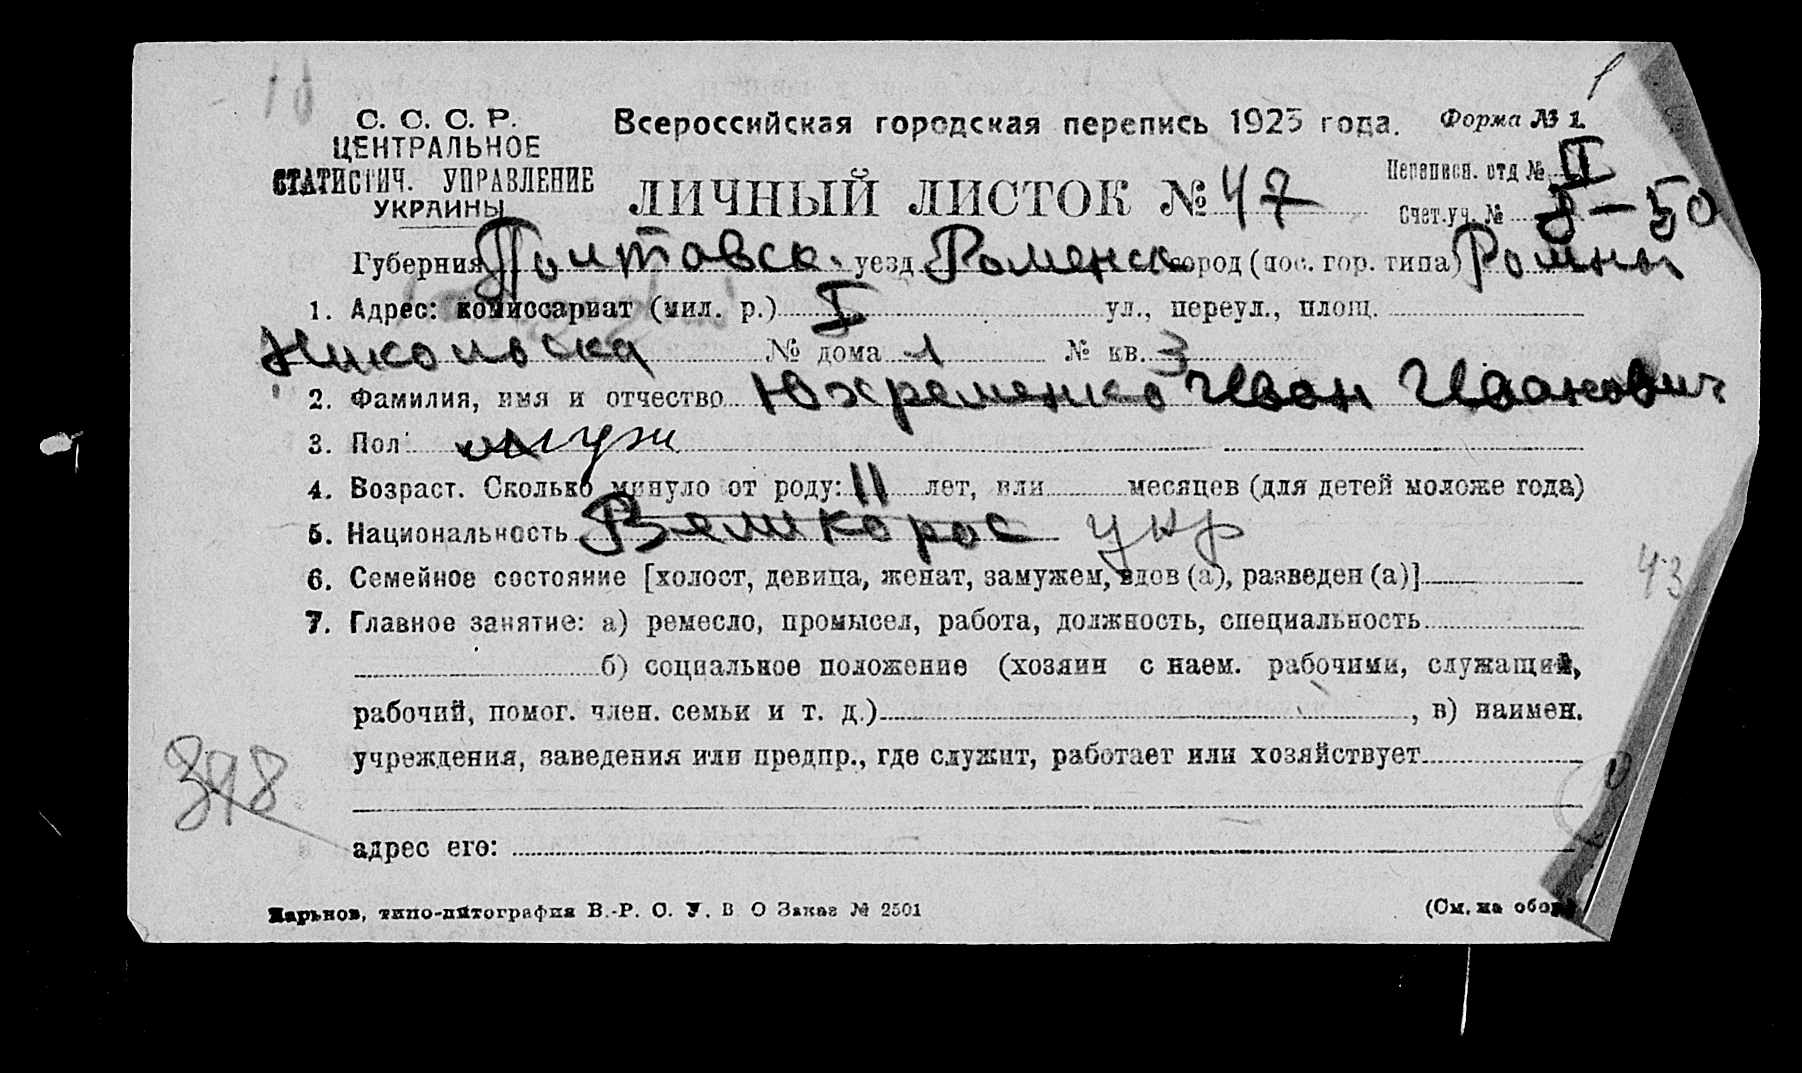 С. С. С. Р.
ЦЕНТРАЛЬНОЕ
СТАТИСТИЧ. УПРАВЛЕНИЕ
УКРАИНЫ
Всероссийская городская перепись 1923 года.
Форма № 1.
ЛИЧНЫЙ ЛИСТОК № 47
Переписн. отд № II
Счет.уч. № 8-50
Губерния Полтавск. уезд Роменск город (пос. гор. типа) Ромны
1. Адрес: комиссариат (мил. р.) I ул., переул., площ.
Никольска № дома 1 № кв. 3
2. Фамилия, имя и отчество Юхременко Иван Иванович
3. Пол муж
4. Возраст. Сколько минуло от роду: 11 лет, или месяцев (для детей моложе года)
5. Национальность Великорос укр
6. Семейное состояние [холост, девица, женат, замужем, вдов (а), разведен (а)]
43
7. Главное занятие: а) ремесло, промысел, работа, должность, специальность
б) социальное положение (хозяин с наем. рабочими, служащий,
рабочий, помог. член. семьи и т. д.) , в) наимен.
учреждения, заведения или предпр., где служит, работает или хозяйствует
398
адрес его:
Харьков, типо-литография В.-Р. С. У. В О Заказ № 2501
(См. на обор.